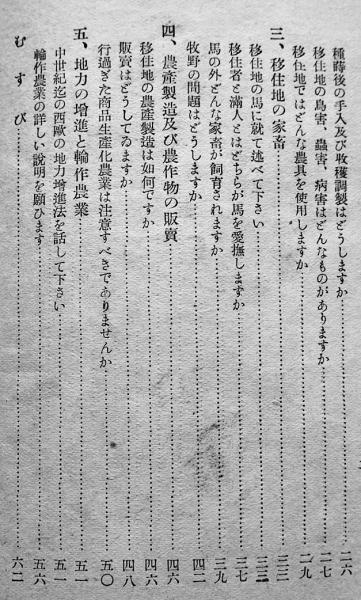 種蒔後の手入及び收穫調製はどうしますか…二六
移住地の鳥害、蟲害、病害はどんなものがありますか…二七
移住地ではどんな農具を使用しますか…二九
三、移住地の家畜…三三
移住地の馬に就て述べて下さい…三三
移住者と滿人とはどちらが馬を愛撫しますか…三七
馬の外どんな家畜が飼育されますか…三九
牧野の問題はどうしますか…四二
四、農產製造及び農作物の販賣…四六
移住地の農產製造は如何ですか…四六
販賣はどうしてゐますか…四八
行過ぎた商品生產化農業は注意すべきでありませんか…五〇
五、地力の增進と輪作農業…五一
中世紀迄の西歐の地力增進法を話して下さい…五一
輪作農業の詳しい說明を願ひます…五六
むすび…六二